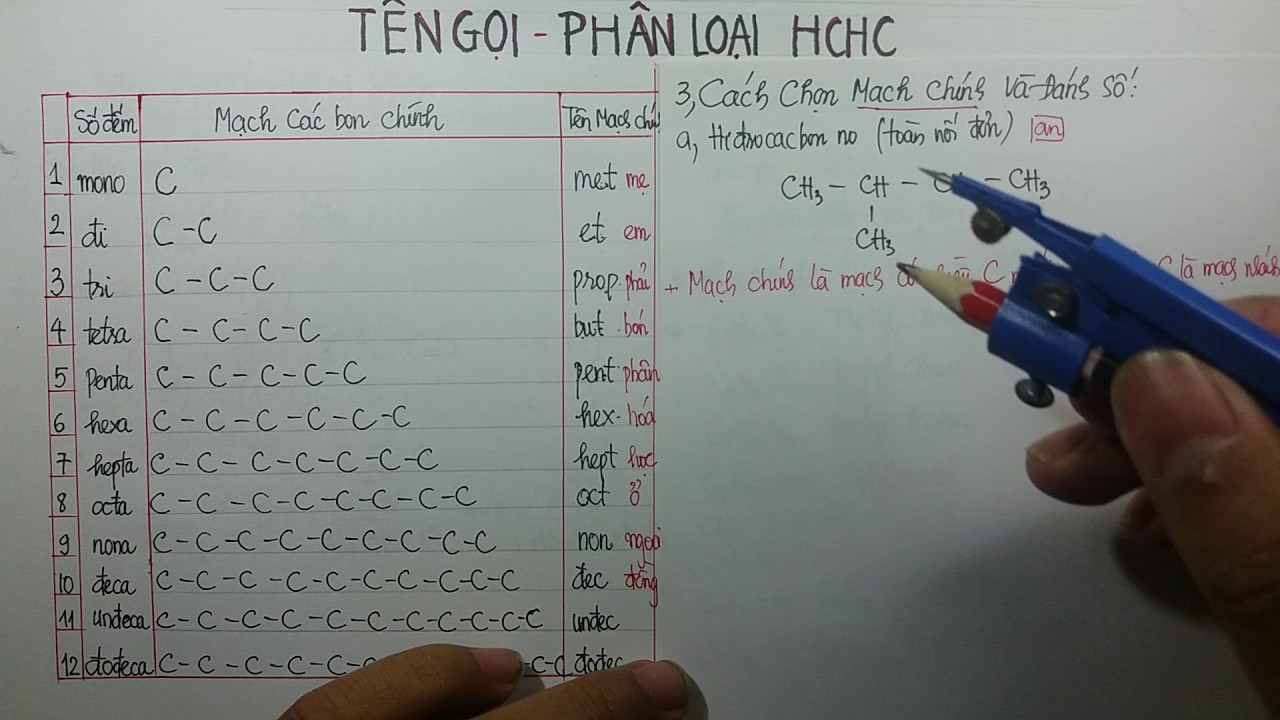 TÊN GỌI - PHÂN LOẠI HCHC
Số đếm Mạch Các bon chính Tên Mạch
1 mono C met mẹ
2 đi C - C et em
3 tri C - C - C prop. phải
4 tetra C - C - C - C but. bón
5 penta C - C - C - C - C pent. phân
6 hexa C - C - C - C - C - C hex. hoá
7 hepta C - C - C - C - C - C - C hept học
8 octa C - C - C - C - C - C - C - C oct ở
9 nona C - C - C - C - C - C - C - C - C non ngoài
10 đeca C - C - C - C - C - C - C - C - C - C đec đồng
11 unđeca C - C - C - C - C - C - C - C - C - C - C unđec
12 đođeca C - C - C - C - C - C - C đođec
3, Cách Chọn Mạch Chính Và Đánh Số:
a, Hiđrocacbon no (toàn nối đơn) an
CH3 - CH - - CH3
CH3
+ Mạch chính là mạch có C C là mạch nhánh